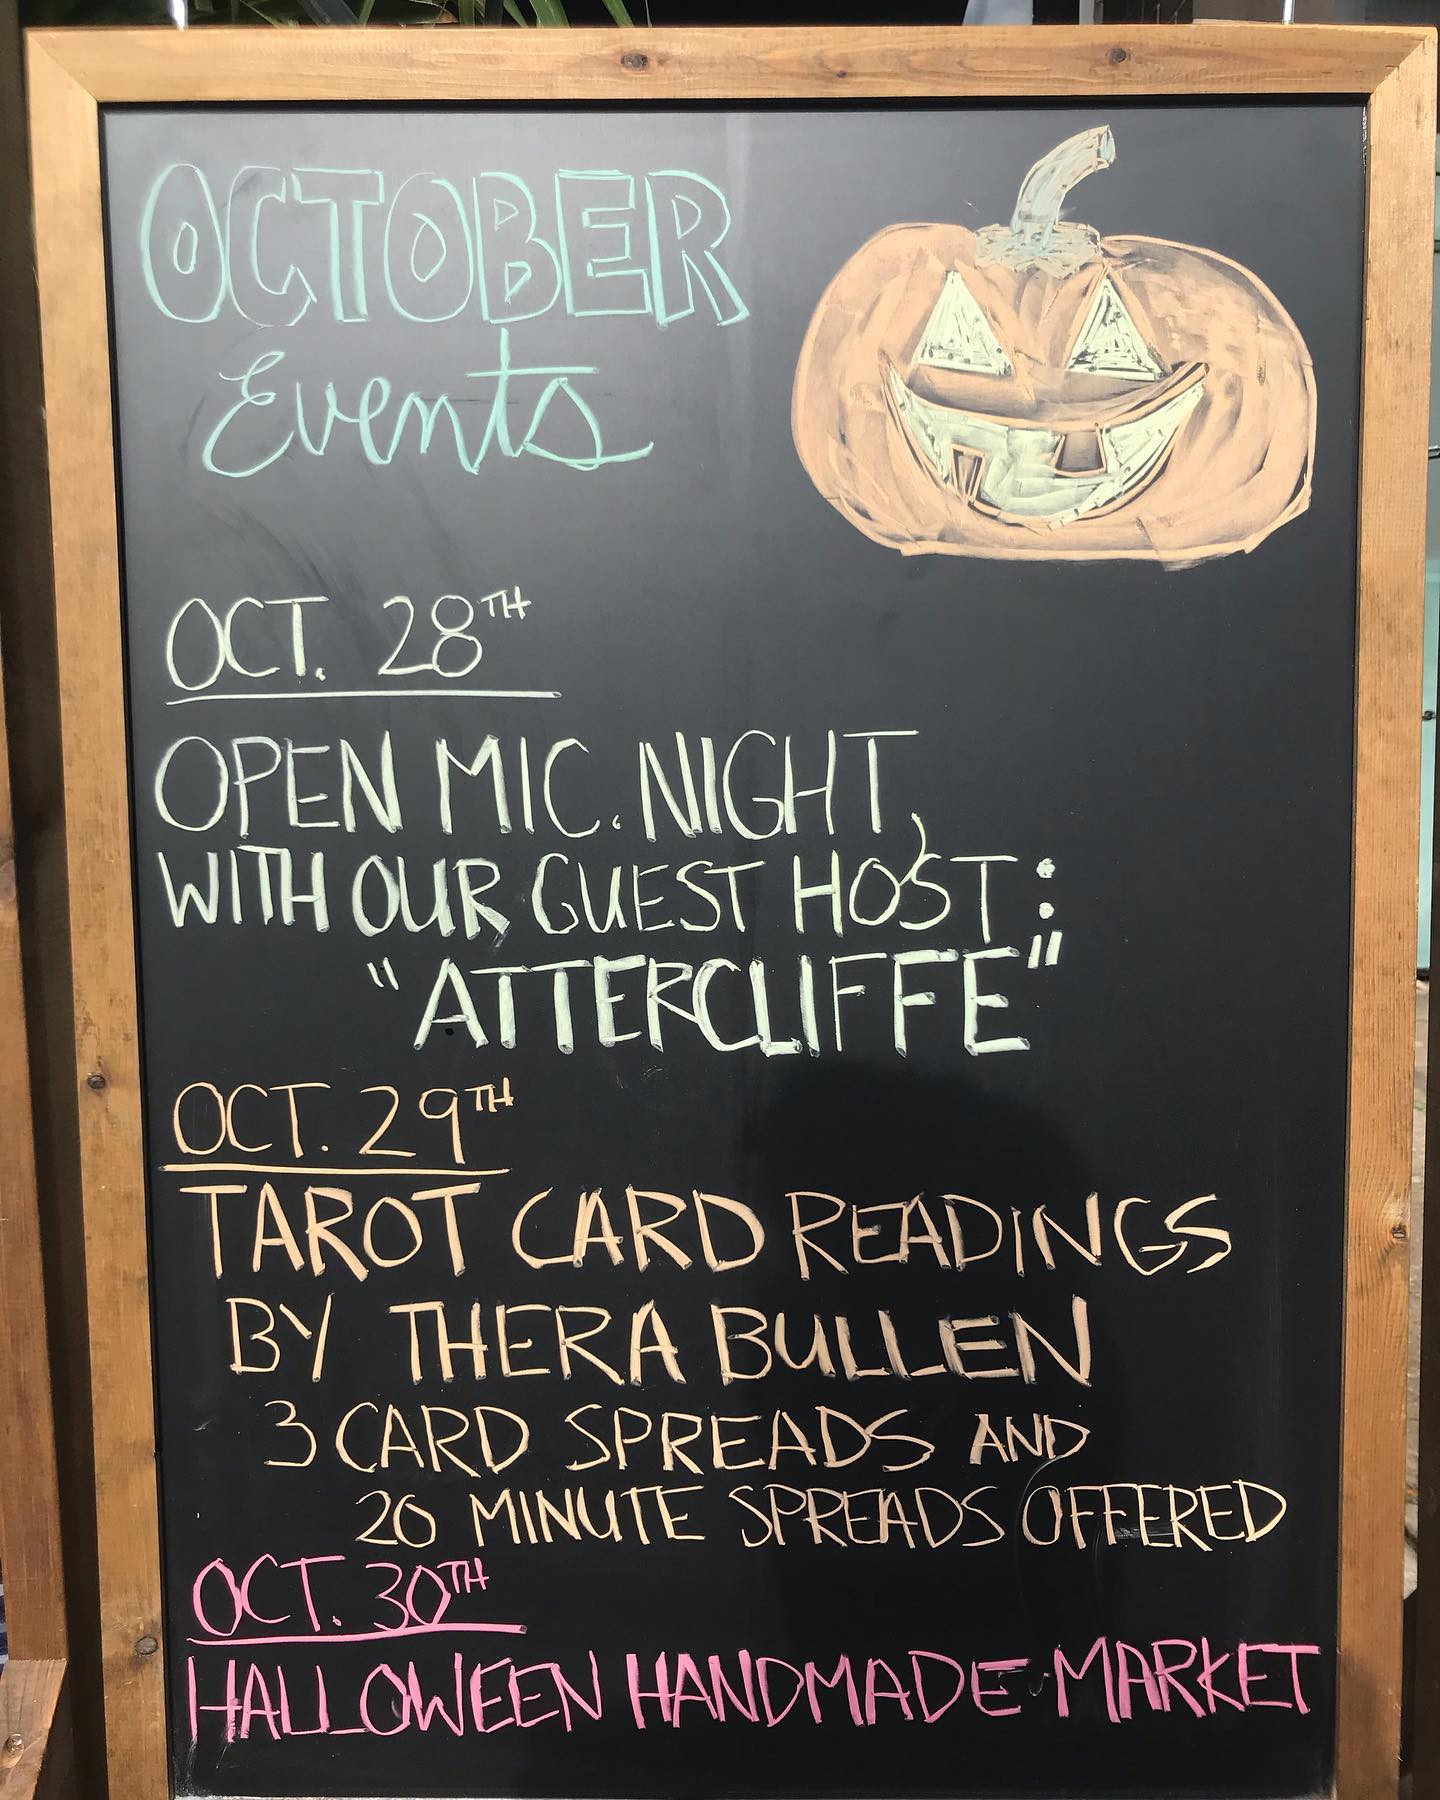 OCTOBER
Events
OCT. 28TH
OPEN MIC. NIGHT,
WITH OUR GUEST HOST:
"ATTERCLIFFE"
OCT. 29TH
TAROT CARD READINGS
BY THERA BULLEN
3 CARD SPREADS AND
20 MINUTE SPREADS OFFERED
OCT. 30TH
HALLOWEEN HANDMADE MARKET